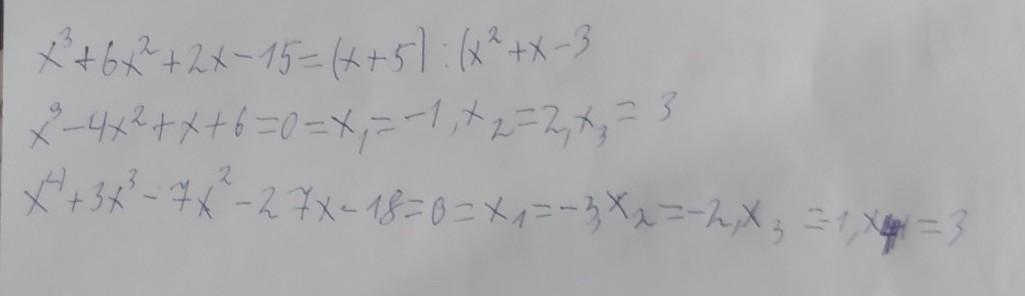 x³+6x²+2x-15=(x+5):(x²+x-3
x³-4x²+x+6=0=x₁=-1,x₂=2,x₃=3
x⁴+3x³-7x²-27x-18=0=x₁=-3,x₂=-2,x₃=-1,x₄=3